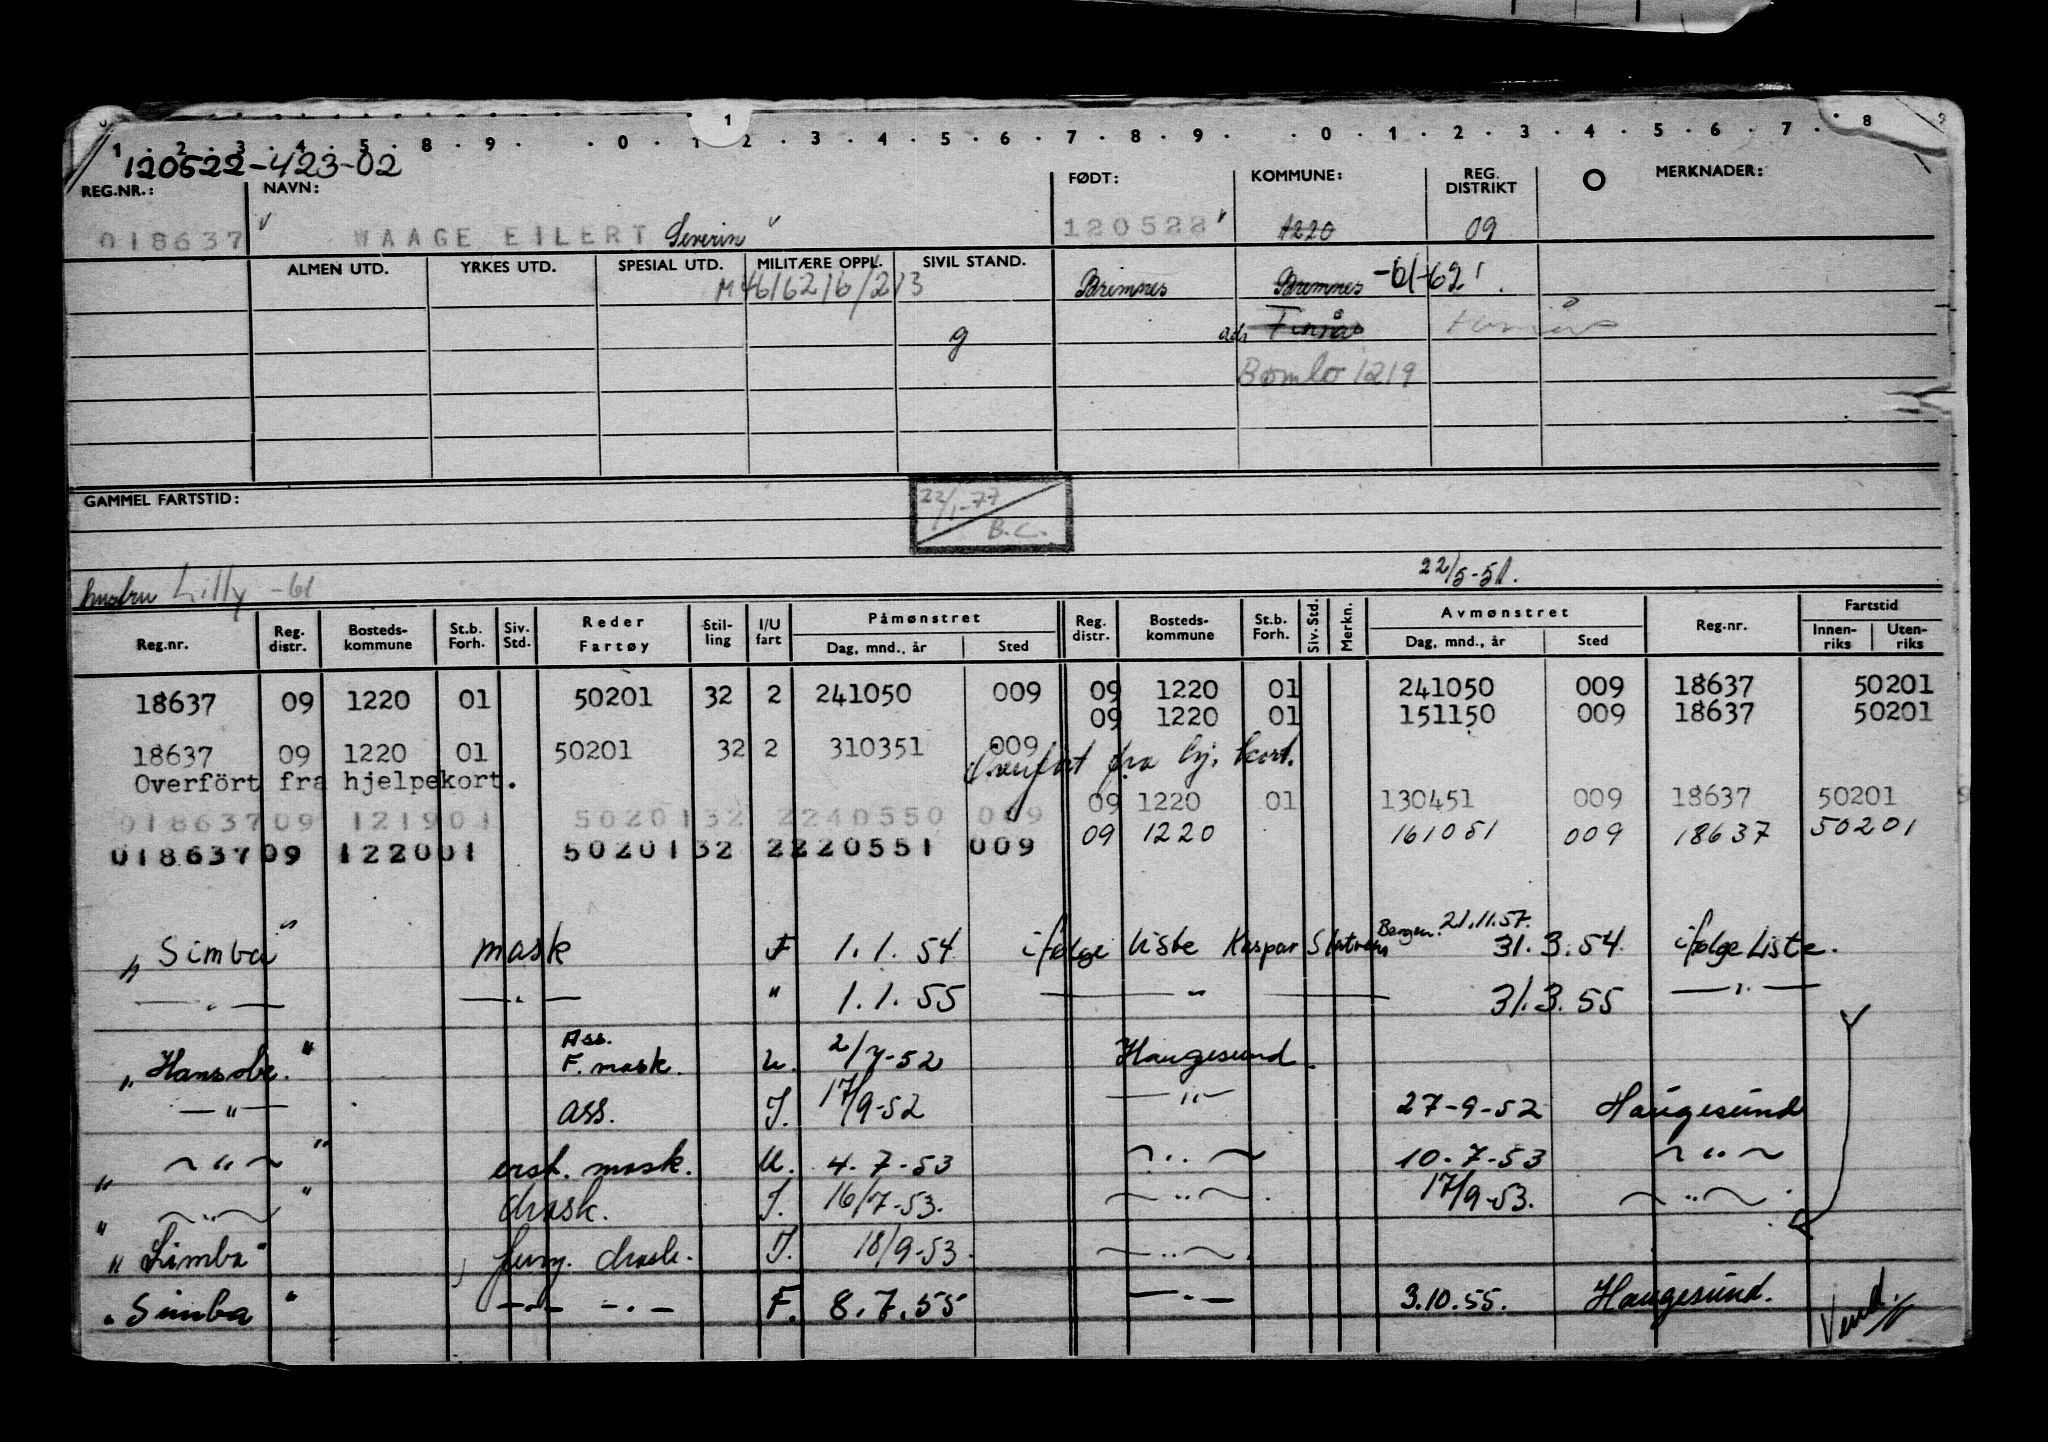 1 . 2 . 3 . 4 . 5 . 8 . 9 . . 0 . 1 2 . 3 . 4 . 5 . 6 . 7 . 8 . 9 . . 0 . 1 . 2 . 3 . 4 . 5 . 6 . 7 . 8 9
1
120522-423-02
REG.NR.: NAVN: FØDT: KOMMUNE: REG. DISTRIKT O MERKNADER:
018637 WAAGE EILERT Severin 120522 1220 09
ALMEN UTD. YRKES UTD. SPESIAL UTD. MILITÆRE OPPL. SIVIL STAND.
Bremnes Bremnes -61-62
g adr Finnås
Bømlo 1219
GAMMEL FARTSTID: 22/1-77 B.C.
hustru Lilly -61 22/5-51.
Reg.nr. Reg. distr. Bosteds-kommune St.b. Forh. Siv. Std. Reder Fartøy Stil-ling I/U fart Påmønstret Dag, mnd., år Sted Reg. distr. Bosteds-kommune St.b. Forh. Siv. Std. Merkn. Avmønstret Dag, mnd., år Sted Reg.nr. Fartstid Innen-riks Uten-riks
18637 09 1220 01 50201 32 2 241050 009 09 1220 01 241050 009 18637 50201
09 1220 01 151150 009 18637 50201
18637 09 1220 01 50201 32 2 310351 009 Overført fra hj. kort.
Overfört fra hjelpekort.
09 1220 01 130451 009 18637 50201 9
01863709 121901 5020132 2240550 009
09 1220 161051 009 18637 50201
01863709 122001 5020132 2220551 009
"Simba" mask F 1.1.54 ifølge liste Kaspar Bergen. 21.11.57. 31.3.54 ifølge Liste.
— " — — " — " 1.1.55 — " — 31.3.55 — " —
" Ass. F. mask. U. 2/7-52 Haugesund.
— " — ass. I. 17/9-52 — " — 27-9-52 Haugesund
" ~ " ~ " erst. mask. U. 4-7-53 ~ " ~ 10-7-53 ~ " ~
" ~ " ~ " Mask. I. 16/7-53. ~ " ~. 17/9-53. ~ " ~
"Simba" fung. Mask. I. 18/9-53. ~ " ~.
"Simba" — " — — " — F. 8.7.55 — " — 3.10.55. Haugesund.
Vend.